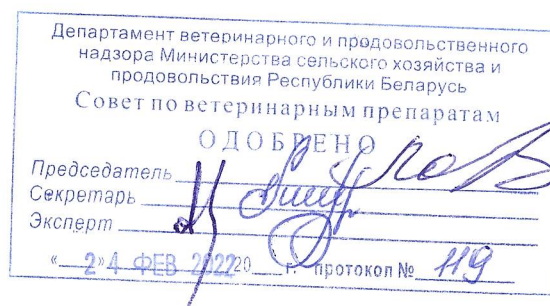 Департамент ветеринарного и продовольственного
надзора Министерства сельского хозяйства и
продовольствия Республики Беларусь
Совет по ветеринарным препаратам
ОДОБРЕНО
Председатель
Секретарь
Эксперт
« 2»4 ФЕВ 202220 г. протокол № 119